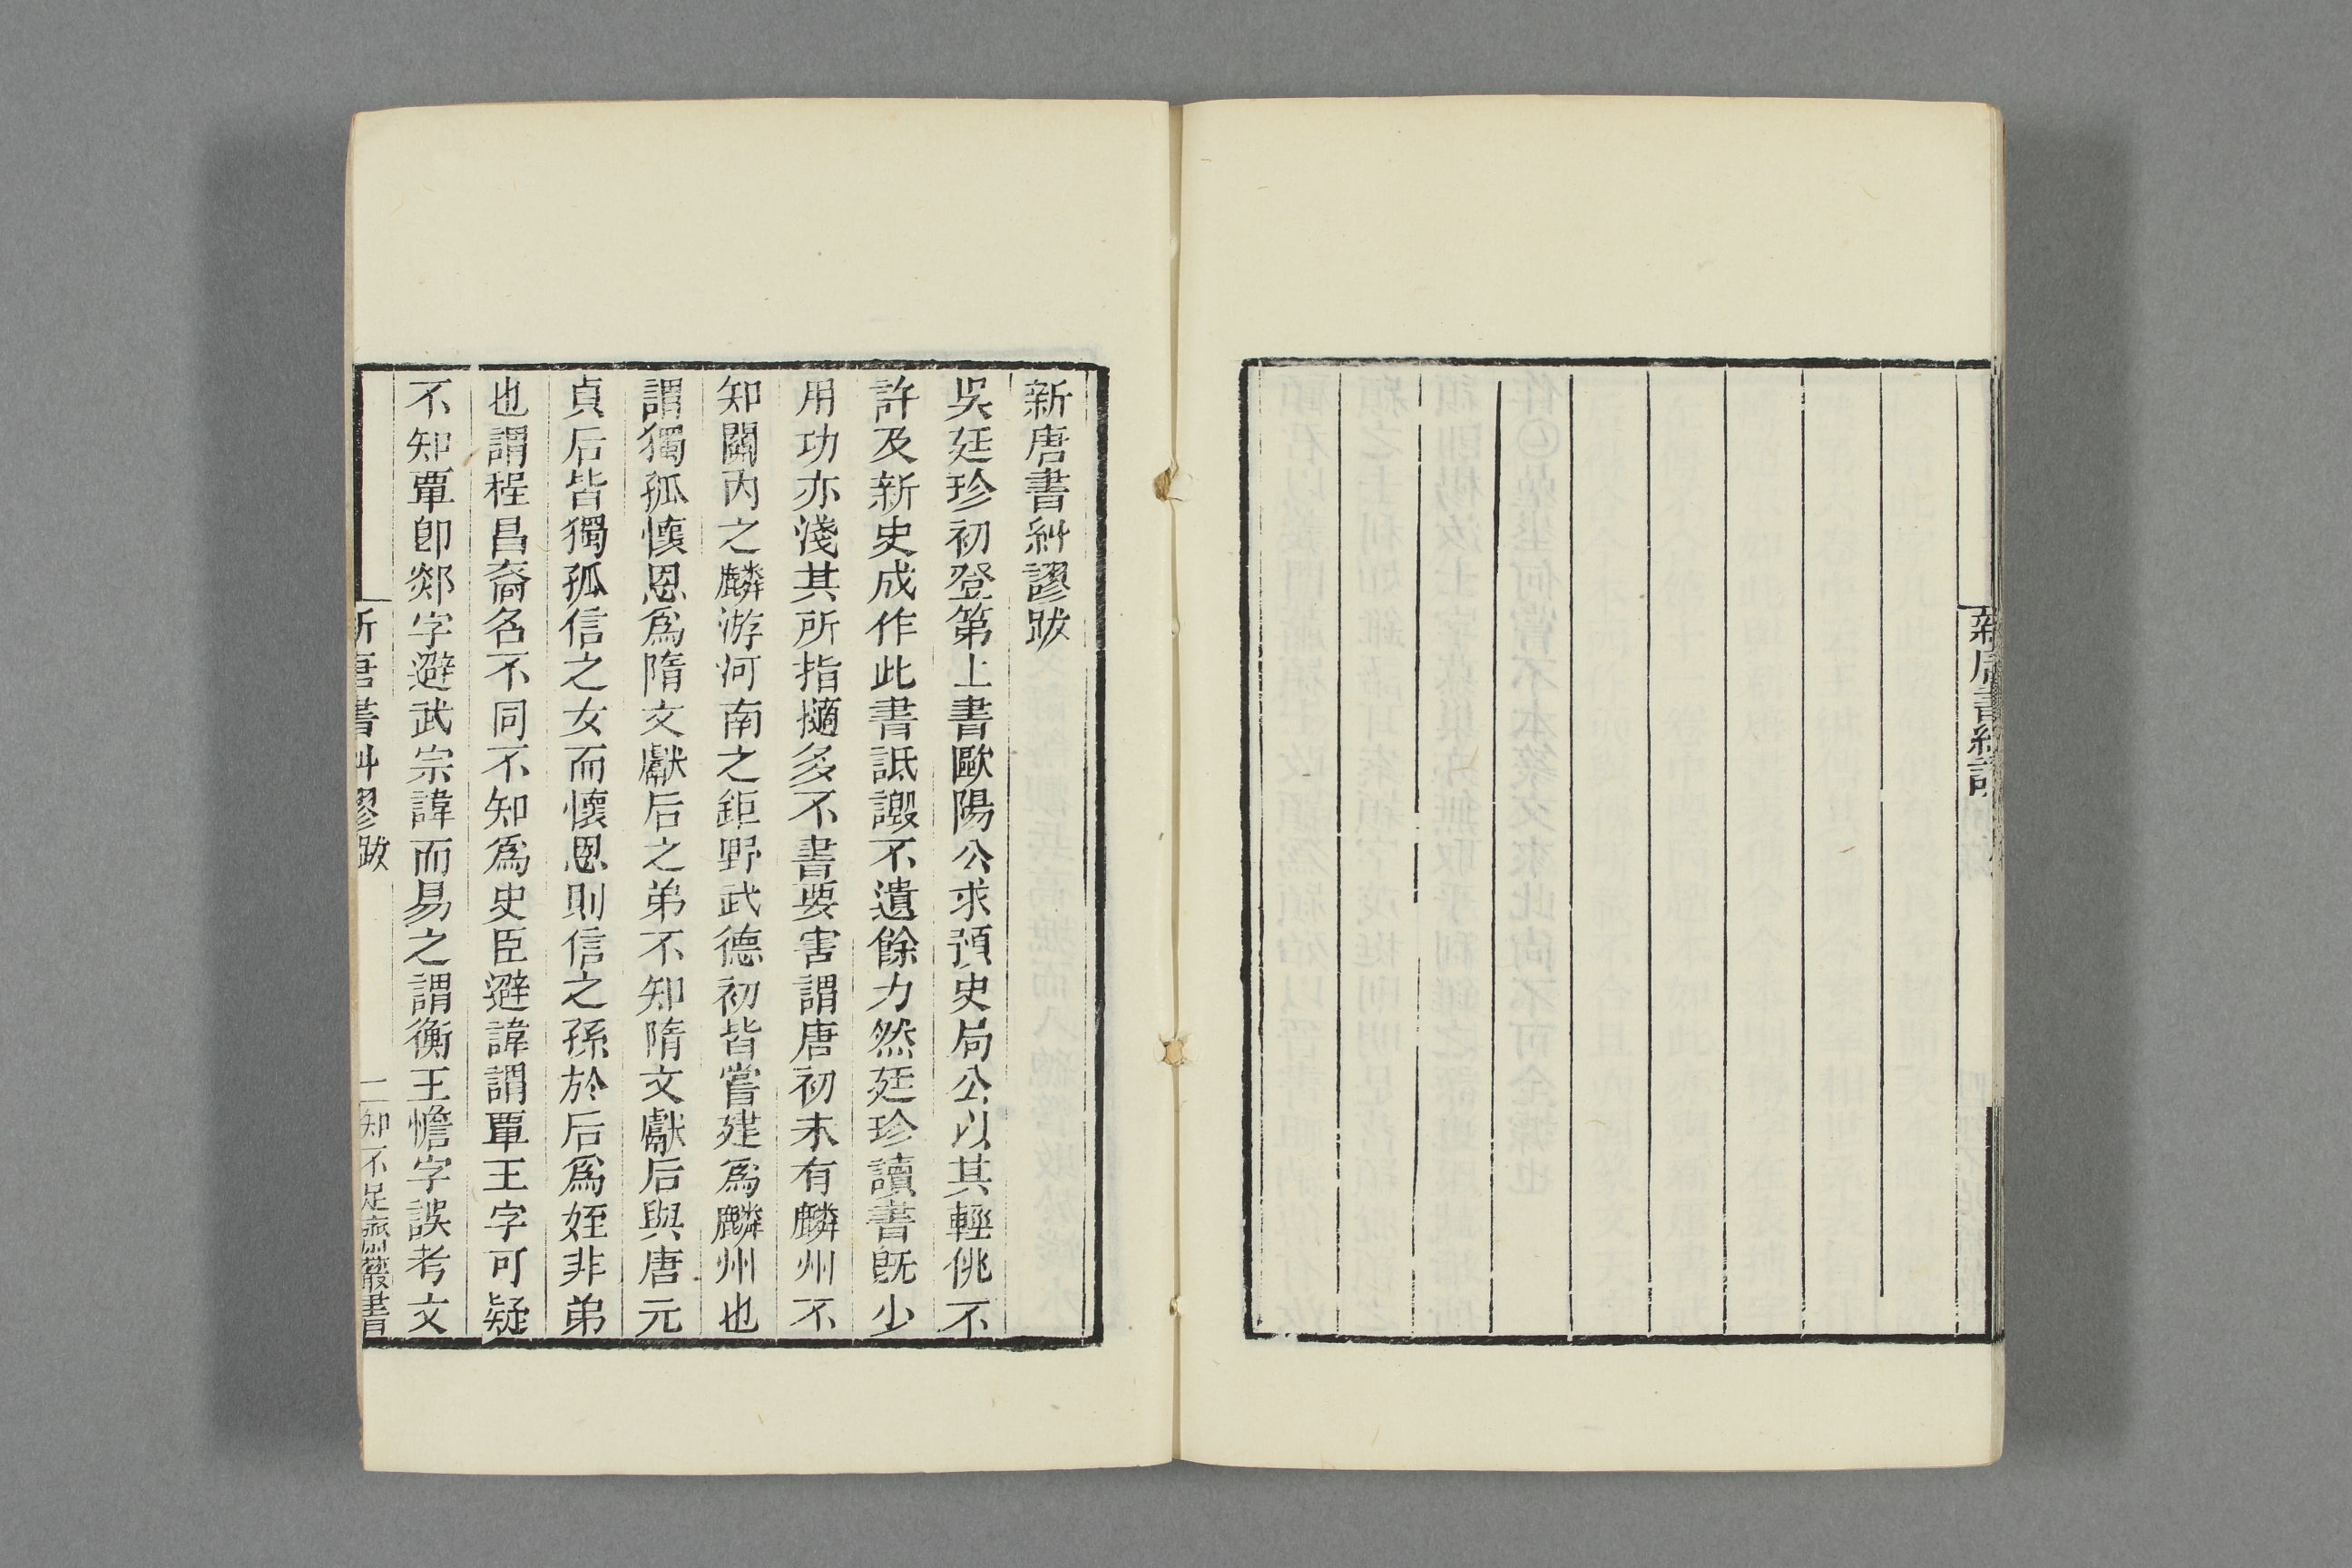 新唐書糾謬跋
吳廷珍初登第上書歐陽公求預史局公以其輕佻不
許及新史成作此書詆譭不遺餘力然廷珍讀書旣少
用功亦淺其所指擿多不書要害謂唐初未有麟州不
知關內之麟游河南之鉅野武德初皆嘗建爲麟州也
謂獨孤懷恩爲隋文獻后之弟不知隋文獻后與唐元
貞后皆獨孤信之女而懷恩則信之孫於后爲姪非弟
也謂程昌裔名不同不知爲史臣避諱謂覃王字可疑
不知覃卽郯字避武宗諱而易之謂衡王憺字誤考文
新唐書糾謬跋
二知不足齋叢書
新唐書糾謬